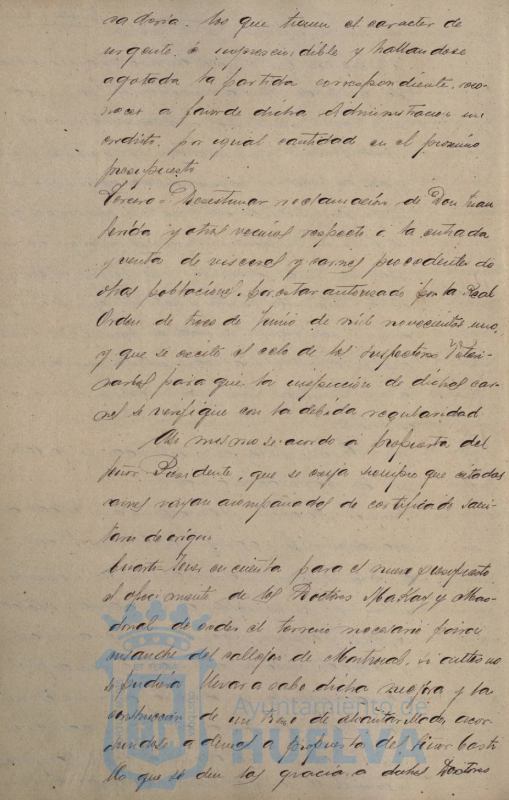 los que tienen el caracter de
urgente é imprescindible y hallandose
agotada la partida correspondiente, reco-
nocer a favor de dicha Administracion un
credito por igual cantidad en el proximo
presupuesto
Tercero = Desestimar reclamación de Don Juan
y otros vecinos respecto a la entrada
y venta de visceras y carnes procedentes de
otras poblaciones, por estar autorizado por la Real
Orden de trece de Junio de mil novecientos uno,
y que se excite el celo de los inspectores Veteri-
narios para que la inspección de dichas car-
nes se verifique con la debida regularidad
Asi mismo se acordo a propuesta del
Señor Presidente, que se exija siempre que citadas
carnes vayan acompañadas de certificado sani-
tario de origen
Cuarto = Tener en cuenta para el nuevo presupuesto
el ofrecimiento de los Doctores Mackay y Mac-
donal de ceder el terreno necesario para
ensanche del callejon de Montrocal, si antes no
se pudiera llevar a cabo dicha mejora y la
construccion de un trozo de alcantarillado, acor-
dandose ademas a propuesta del Señor Casti-
llo que se den las gracias a dichos Doctores
Ayuntamiento de
HUELVA